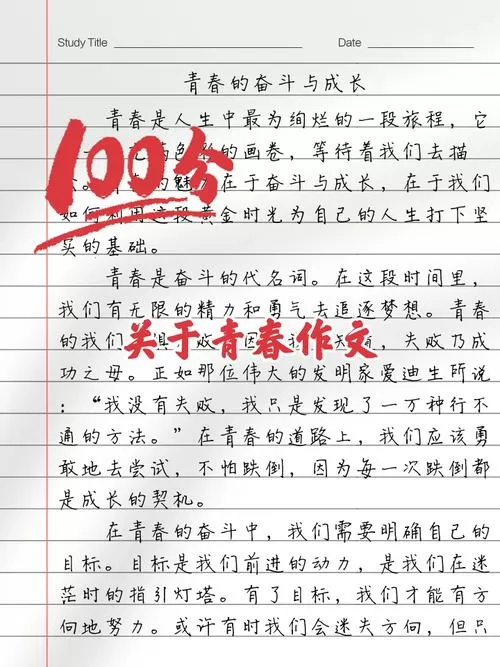 Study Title
Date
青春的奋斗与成长
青春是人生中最为绚烂的一段旅程，它
100分
色彩的画卷，等待着我们去描
。青春的魅力在于奋斗与成长，在于我们
如何利用这段黄金时光为自己的人生打下坚
实的基础。
青春是奋斗的代名词。在这段时间里，
我们有无限的精力和勇气去追逐梦想。青春
的我们 惧 败 因 知 ，失败乃成
关于青春作文
功之母。正如那位伟大的发明家爱迪生所说
：“我没有失败，我只是发现了一万种行不
通的方法。”在青春的道路上，我们应该勇
敢地去尝试，不怕跌倒，因为每一次跌倒都
是成长的契机。
在青春的奋斗中，我们需要明确自己的
目标。目标是我们前进的动力，是我们在迷
茫时的指引灯塔。有了目标，我们才能有方
向地努力。或许有时我们会迷失方向，但只